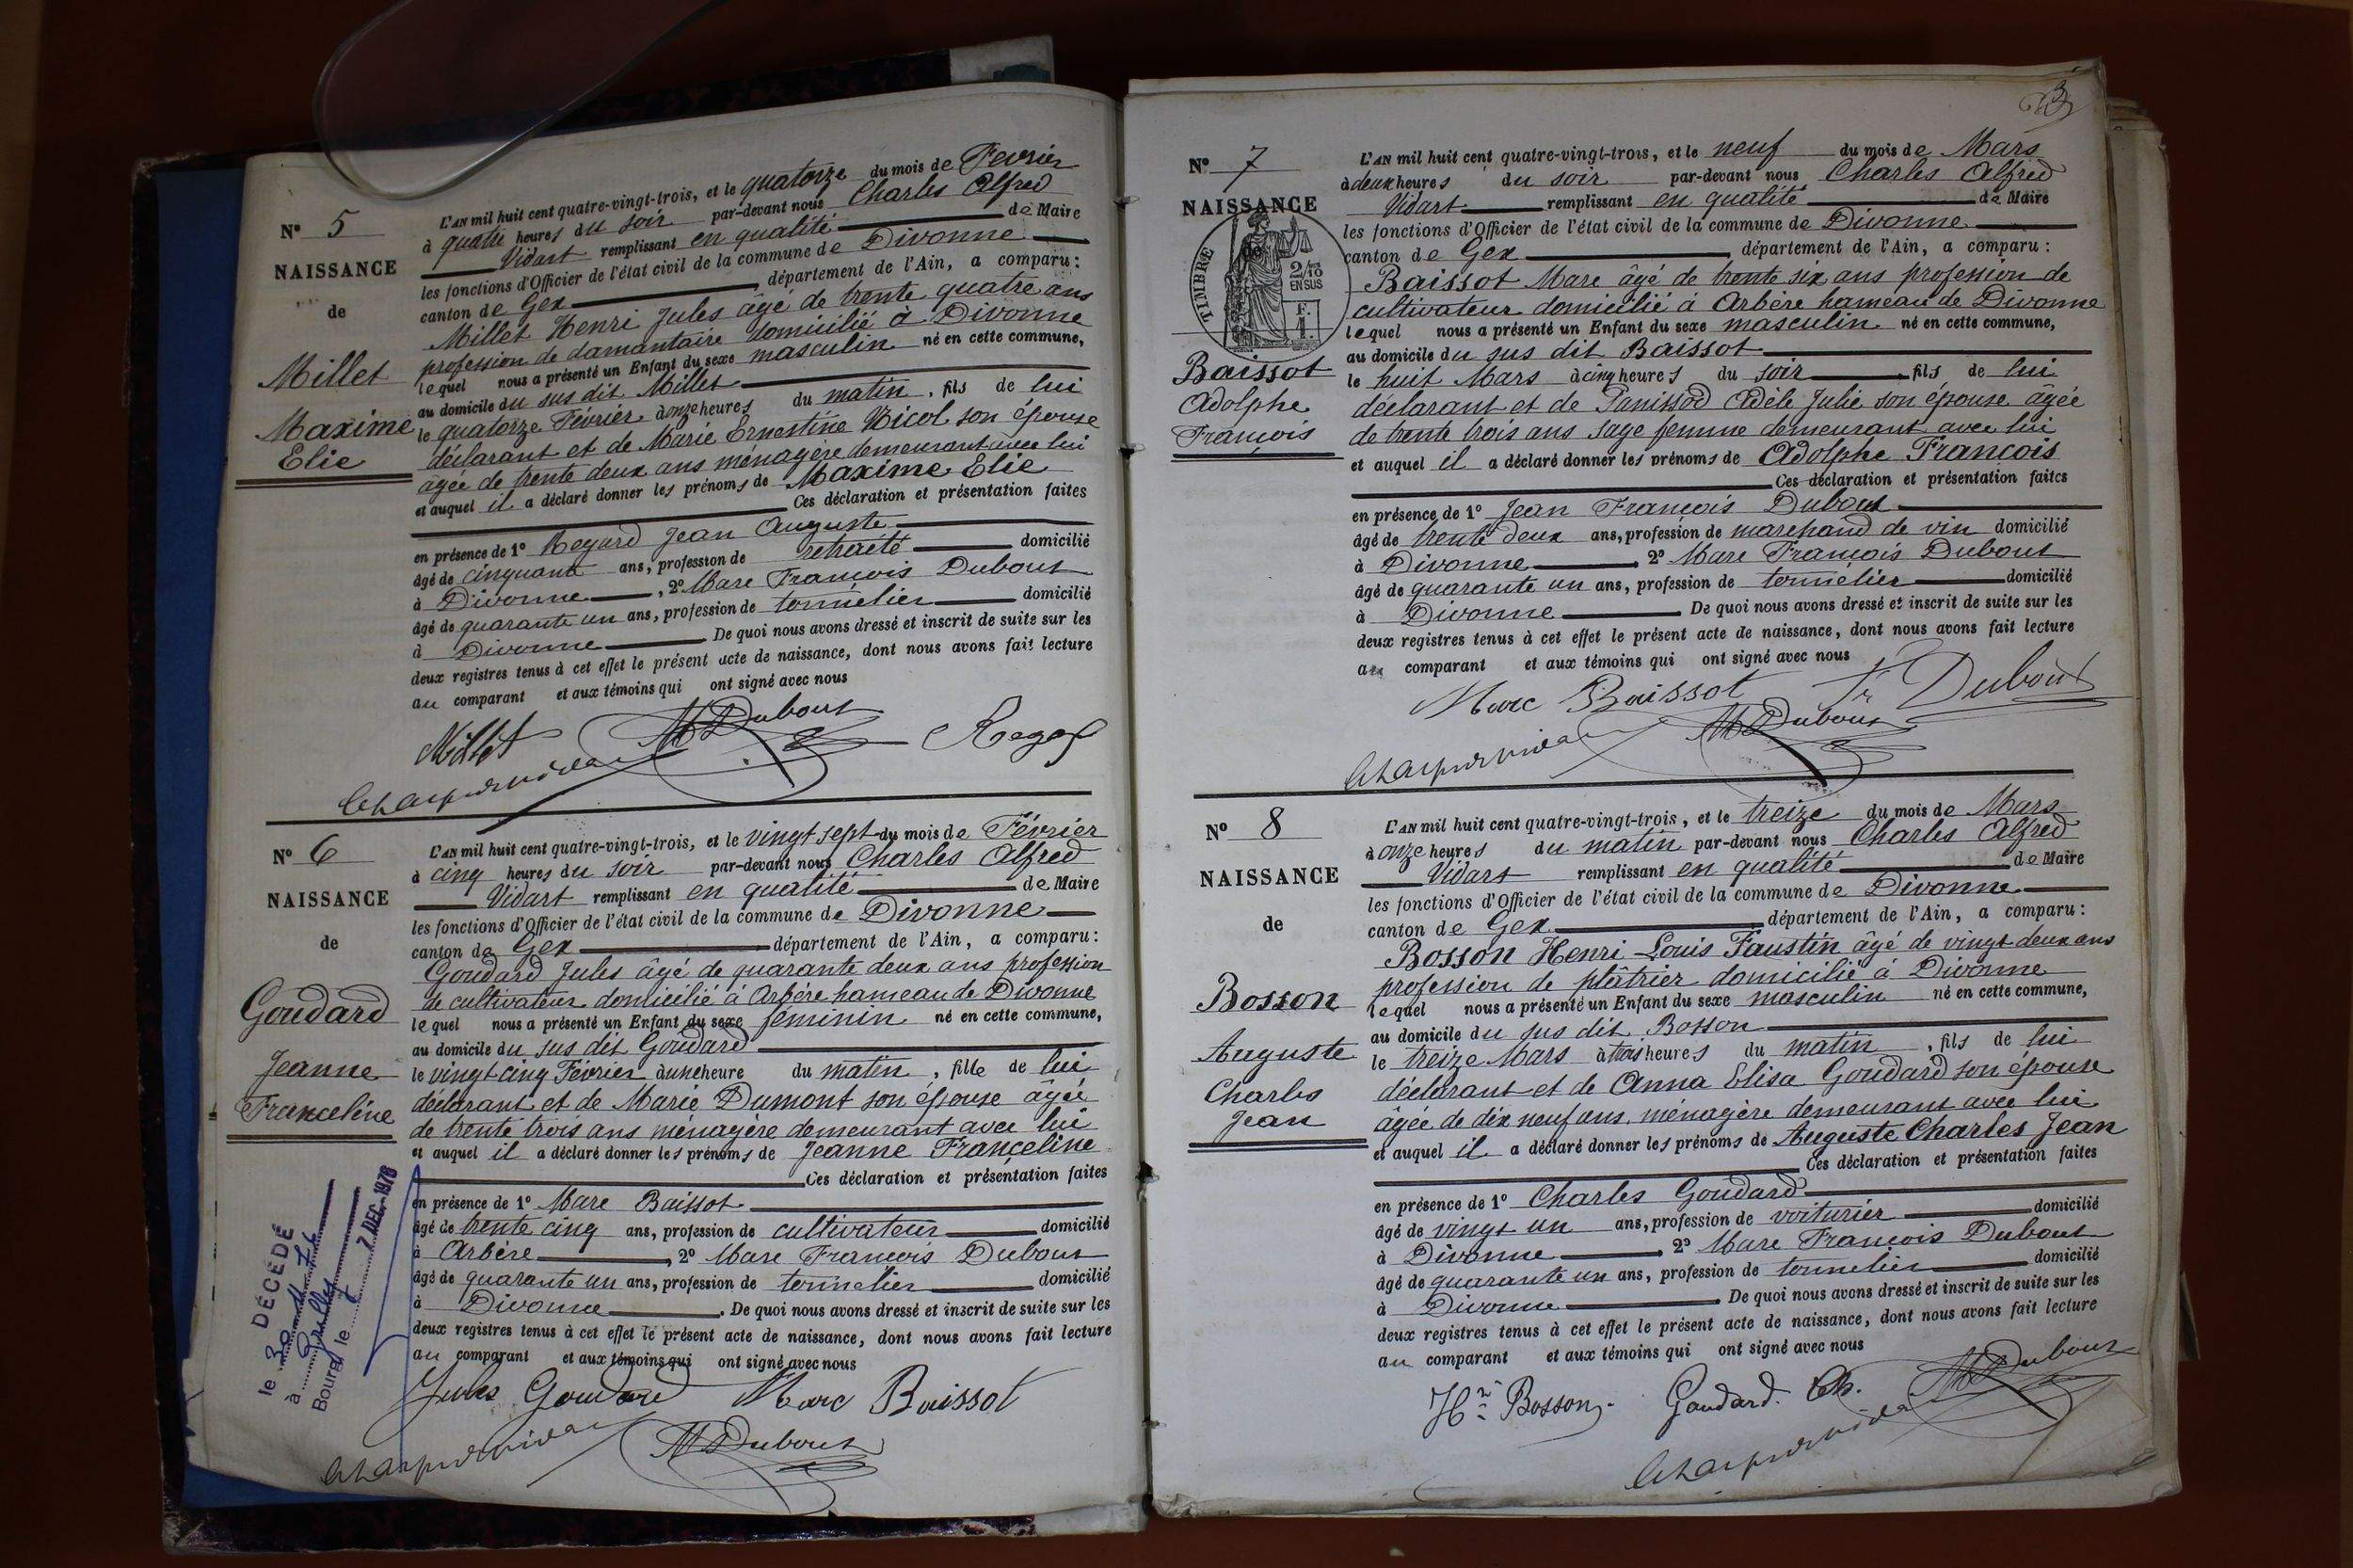 N° 5
NAISSANCE
de
Millet
Maxime
Elie
L'AN mil huit cent quatre-vingt-trois, et le quatorze du mois de Fevrier
à quatre heures du soir par-devant nous Charles Alfred
Vidart remplissant en qualité de Maire
les fonctions d'Officier de l'état civil de la commune de Divonne
canton de Gex, département de l'Ain, a comparu :
Millet Henri Jules âgé de trente quatre ans
profession de diamantaire domicilié à Divonne
lequel nous a présenté un Enfant du sexe masculin né en cette commune,
au domicile du sus dit Millet
le quatorze Février à onze heures du matin, fils de lui
déclarant et de Marie Ernestine Nicol son épouse
âgée de trente deux ans ménagère demeurant avec lui
et auquel il a déclaré donner les prénoms de Maxime Elie
Ces déclaration et présentation faites
en présence de 1° Regard Jean Auguste
âgé de cinquante ans, profession de retraité domicilié
à Divonne, 2° Marc François Dubout
âgé de quarante un ans, profession de tonnelier domicilié
à Divonne De quoi nous avons dressé et inscrit de suite sur les
deux registres tenus à cet effet le présent acte de naissance, dont nous avons fait lecture
au comparant et aux témoins qui ont signé avec nous
Millet M Dubout Regar
N° 6
NAISSANCE
de
Goudard
Jeanne
Franceline
L'AN mil huit cent quatre-vingt-trois, et le vingt sept du mois de Février
à cinq heures du soir par-devant nous Charles Alfred
Vidart remplissant en qualité de Maire
les fonctions d'Officier de l'état civil de la commune de Divonne
canton de Gex département de l'Ain, a comparu :
Goudard Jules âgé de quarante deux ans profession
de cultivateur domicilié à Arbère hameau de Divonne
lequel nous a présenté un Enfant du sexe féminin né en cette commune,
au domicile du sus dit Goudard
le vingt cinq Février à une heure du matin, fille de lui
déclarant et de Marie Dumont son épouse âgée
de trente trois ans ménagère demeurant avec lui
et auquel il a déclaré donner les prénoms de Jeanne Franceline
Ces déclaration et présentation faites
en présence de 1° Marc Baissot
âgé de trente cinq ans, profession de cultivateur domicilié
à Arbère, 2° Marc François Dubout
âgé de quarante un ans, profession de tonnelier domicilié
à Divonne. De quoi nous avons dressé et inscrit de suite sur les
deux registres tenus à cet effet le présent acte de naissance, dont nous avons fait lecture
au comparant et aux témoins qui ont signé avec nous
Jules Goudard Marc Baissot
M Dubout
DÉCÉDÉ
le 30 11 76
à Grilly
Bourg, le 7 DEC. 1976
3
N° 7
NAISSANCE
de
TIMBRE
2/10
EN SUS
F.
1.
Baissot
Adolphe
François
L'AN mil huit cent quatre-vingt-trois, et le neuf du mois de Mars
à deux heures du soir par-devant nous Charles Alfred
Vidart remplissant en qualité de Maire
les fonctions d'Officier de l'état civil de la commune de Divonne
canton de Gex département de l'Ain, a comparu :
Baissot Marc âgé de trente six ans profession de
cultivateur domicilié à Arbère hameau de Divonne
lequel nous a présenté un Enfant du sexe masculin né en cette commune,
au domicile du sus dit Baissot
le huit Mars à cinq heures du soir, fils de lui
déclarant et de Panissod Adèle Julie son épouse âgée
de trente trois ans sage femme demeurant avec lui
et auquel il a déclaré donner les prénoms de Adolphe François
Ces déclaration et présentation faites
en présence de 1° Jean François Dubout
âgé de trente deux ans, profession de marchand de vin domicilié
à Divonne, 2° Marc François Dubout
âgé de quarante un ans, profession de tonnelier domicilié
à Divonne De quoi nous avons dressé et inscrit de suite sur les
deux registres tenus à cet effet le présent acte de naissance, dont nous avons fait lecture
au comparant et aux témoins qui ont signé avec nous
Marc Baissot Fr Dubout
M Dubout
N° 8
NAISSANCE
de
Bosson
Auguste
Charles
Jean
L'AN mil huit cent quatre-vingt-trois, et le treize du mois de Mars
à onze heures du matin par-devant nous Charles Alfred
Vidart remplissant en qualité de Maire
les fonctions d'Officier de l'état civil de la commune de Divonne
canton de Gex département de l'Ain, a comparu :
Bosson Henri Louis Faustin âgé de vingt deux ans
profession de plâtrier domicilié à Divonne
lequel nous a présenté un Enfant du sexe masculin né en cette commune,
au domicile du sus dit Bosson
le treize Mars à trois heures du matin, fils de lui
déclarant et de Anna Elisa Goudard son épouse
âgée de dix neuf ans, ménagère demeurant avec lui
et auquel il a déclaré donner les prénoms de Auguste Charles Jean
Ces déclaration et présentation faites
en présence de 1° Charles Goudard
âgé de vingt un ans, profession de voiturier domicilié
à Divonne, 2° Marc François Dubout
âgé de quarante un ans, profession de tonnelier domicilié
à Divonne De quoi nous avons dressé et inscrit de suite sur les
deux registres tenus à cet effet le présent acte de naissance, dont nous avons fait lecture
au comparant et aux témoins qui ont signé avec nous
Hri Bosson. Goudard. Ch. M Dubout